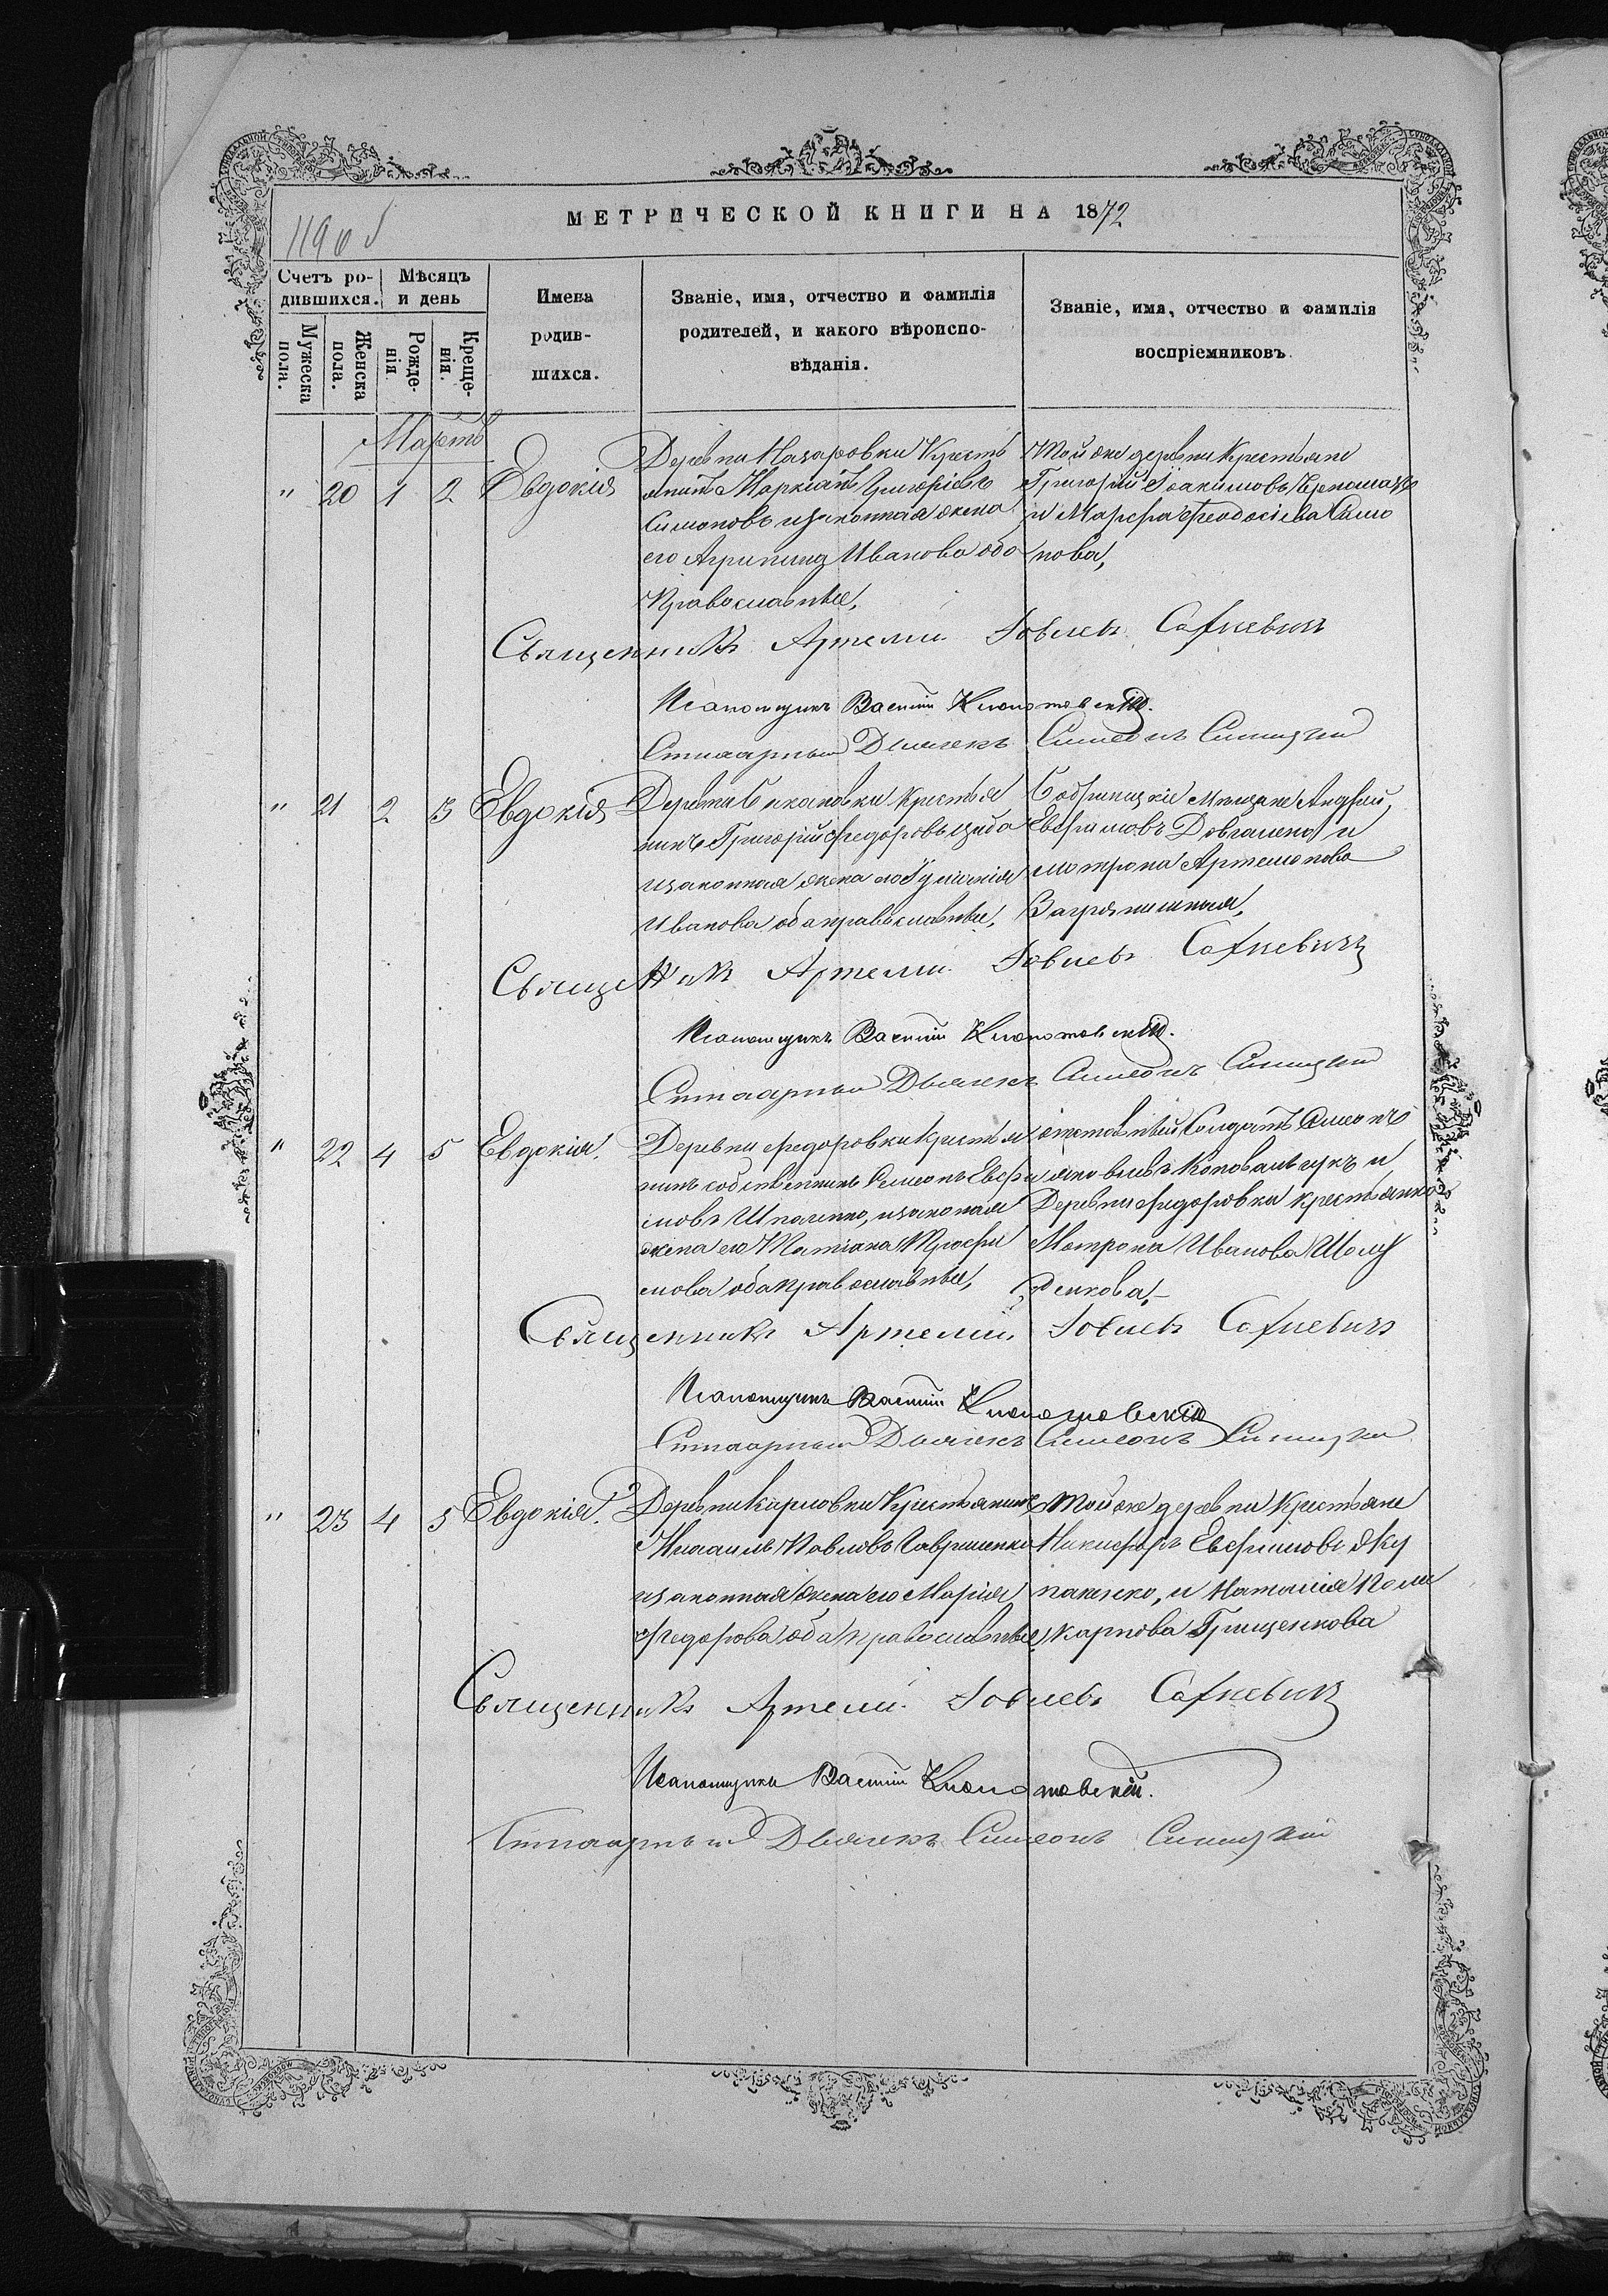 МЕТРИЧЕСКОЙ КНИГИ НА 1872
119 об
Счетъ ро-
дившихся.
Мѣсяцъ
и день
Мужеска
пола.
Женска
пола.
Рожде-
нія
Креще-
нія.
Имена
родив-
шихся.
Званіе, имя, отчество и фамилія
родителей, и какого вѣроиспо-
вѣданія.
Званіе, имя, отчество и фамилія
воспріемниковъ.
Мартъ
" 20 1 2 Евдокія
Деревни Назаровки Кресть
янинъ Маркіанъ Григоріевъ
Симоновъ изаконная жена
его Агрипина Иванова обо
Православные,
Тойже деревни Крестьяне
Григорій Іоакимовъ
и Марфа Феодосіева Симо
нова,
Священникъ Артемий Іовлевъ Саткевичъ
Псаломщикъ Василій Клопотовскій.
Стихарный Дьячекъ Симеонъ Синицкій
" 21 2 3 Евдокія
Деревни крестья
нинъ Григорій Федоровъ
изаконная жена его Гликерія
Иванова оба православные,
Бобринецкіе Мещане Андрей
Евфимовъ Довгаленко и
мотрона Артемонова
Священникъ Артемий Іовлевъ Саткевичъ
Псаломщикъ Василій Клопотовскій.
Стихарный Дьячекъ Симеонъ Синицкій
" 22 4 5 Евдокія.
Деревни Федоровки крестья
нинъ собственникъ Симеонъ Евфи
мовъ Шпаленко, изаконная
жена его Татіана Трофи
мова оба православные,
отставный Солдатъ Симеонъ
яковлевъ Коновальчукъ и
Деревни Федоровки крестьянка
Мотрона Иванова Шелу
денкова,
Священникъ Артемий Іовлевъ Саткевичъ
Псаломщикъ Василій Клопотовскій
Стихарный Дьячекъ Симеонъ Синицкій
" 23 4 5 Евдокія.
Деревни Кирловки Крестьянинъ
Михаилъ Павловъ Гавриленко
изаконная жена его Марія
Федорова оба православные,
Тойже деревни Крестьяне
Никифоръ Евфимовъ Жу
паненко, и Наталія Поли
карпова Грищенкова
Священникъ Артемий Іовлевъ Саткевичъ
Псаломщикъ Василій Клопотовскій.
Стихарный Дьячекъ Симеонъ Синицкій